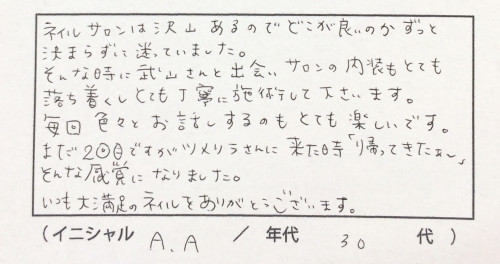 ネイルサロンは沢山あるのでどこが良いのかずっと
決まらずに迷っていました。
そんな時に武山さんと出会い サロンの内装もとても
落ち着くしとても丁寧に施術して下さいます。
毎回色々とお話しするのもとても楽しいです。
まだ2回目ですがツメリラさんに来た時「帰ってきたぁ〜」
そんな感覚になりました。
いつも大満足のネイルをありがとうございます。
(イニシャル A.A / 年代 30 代)